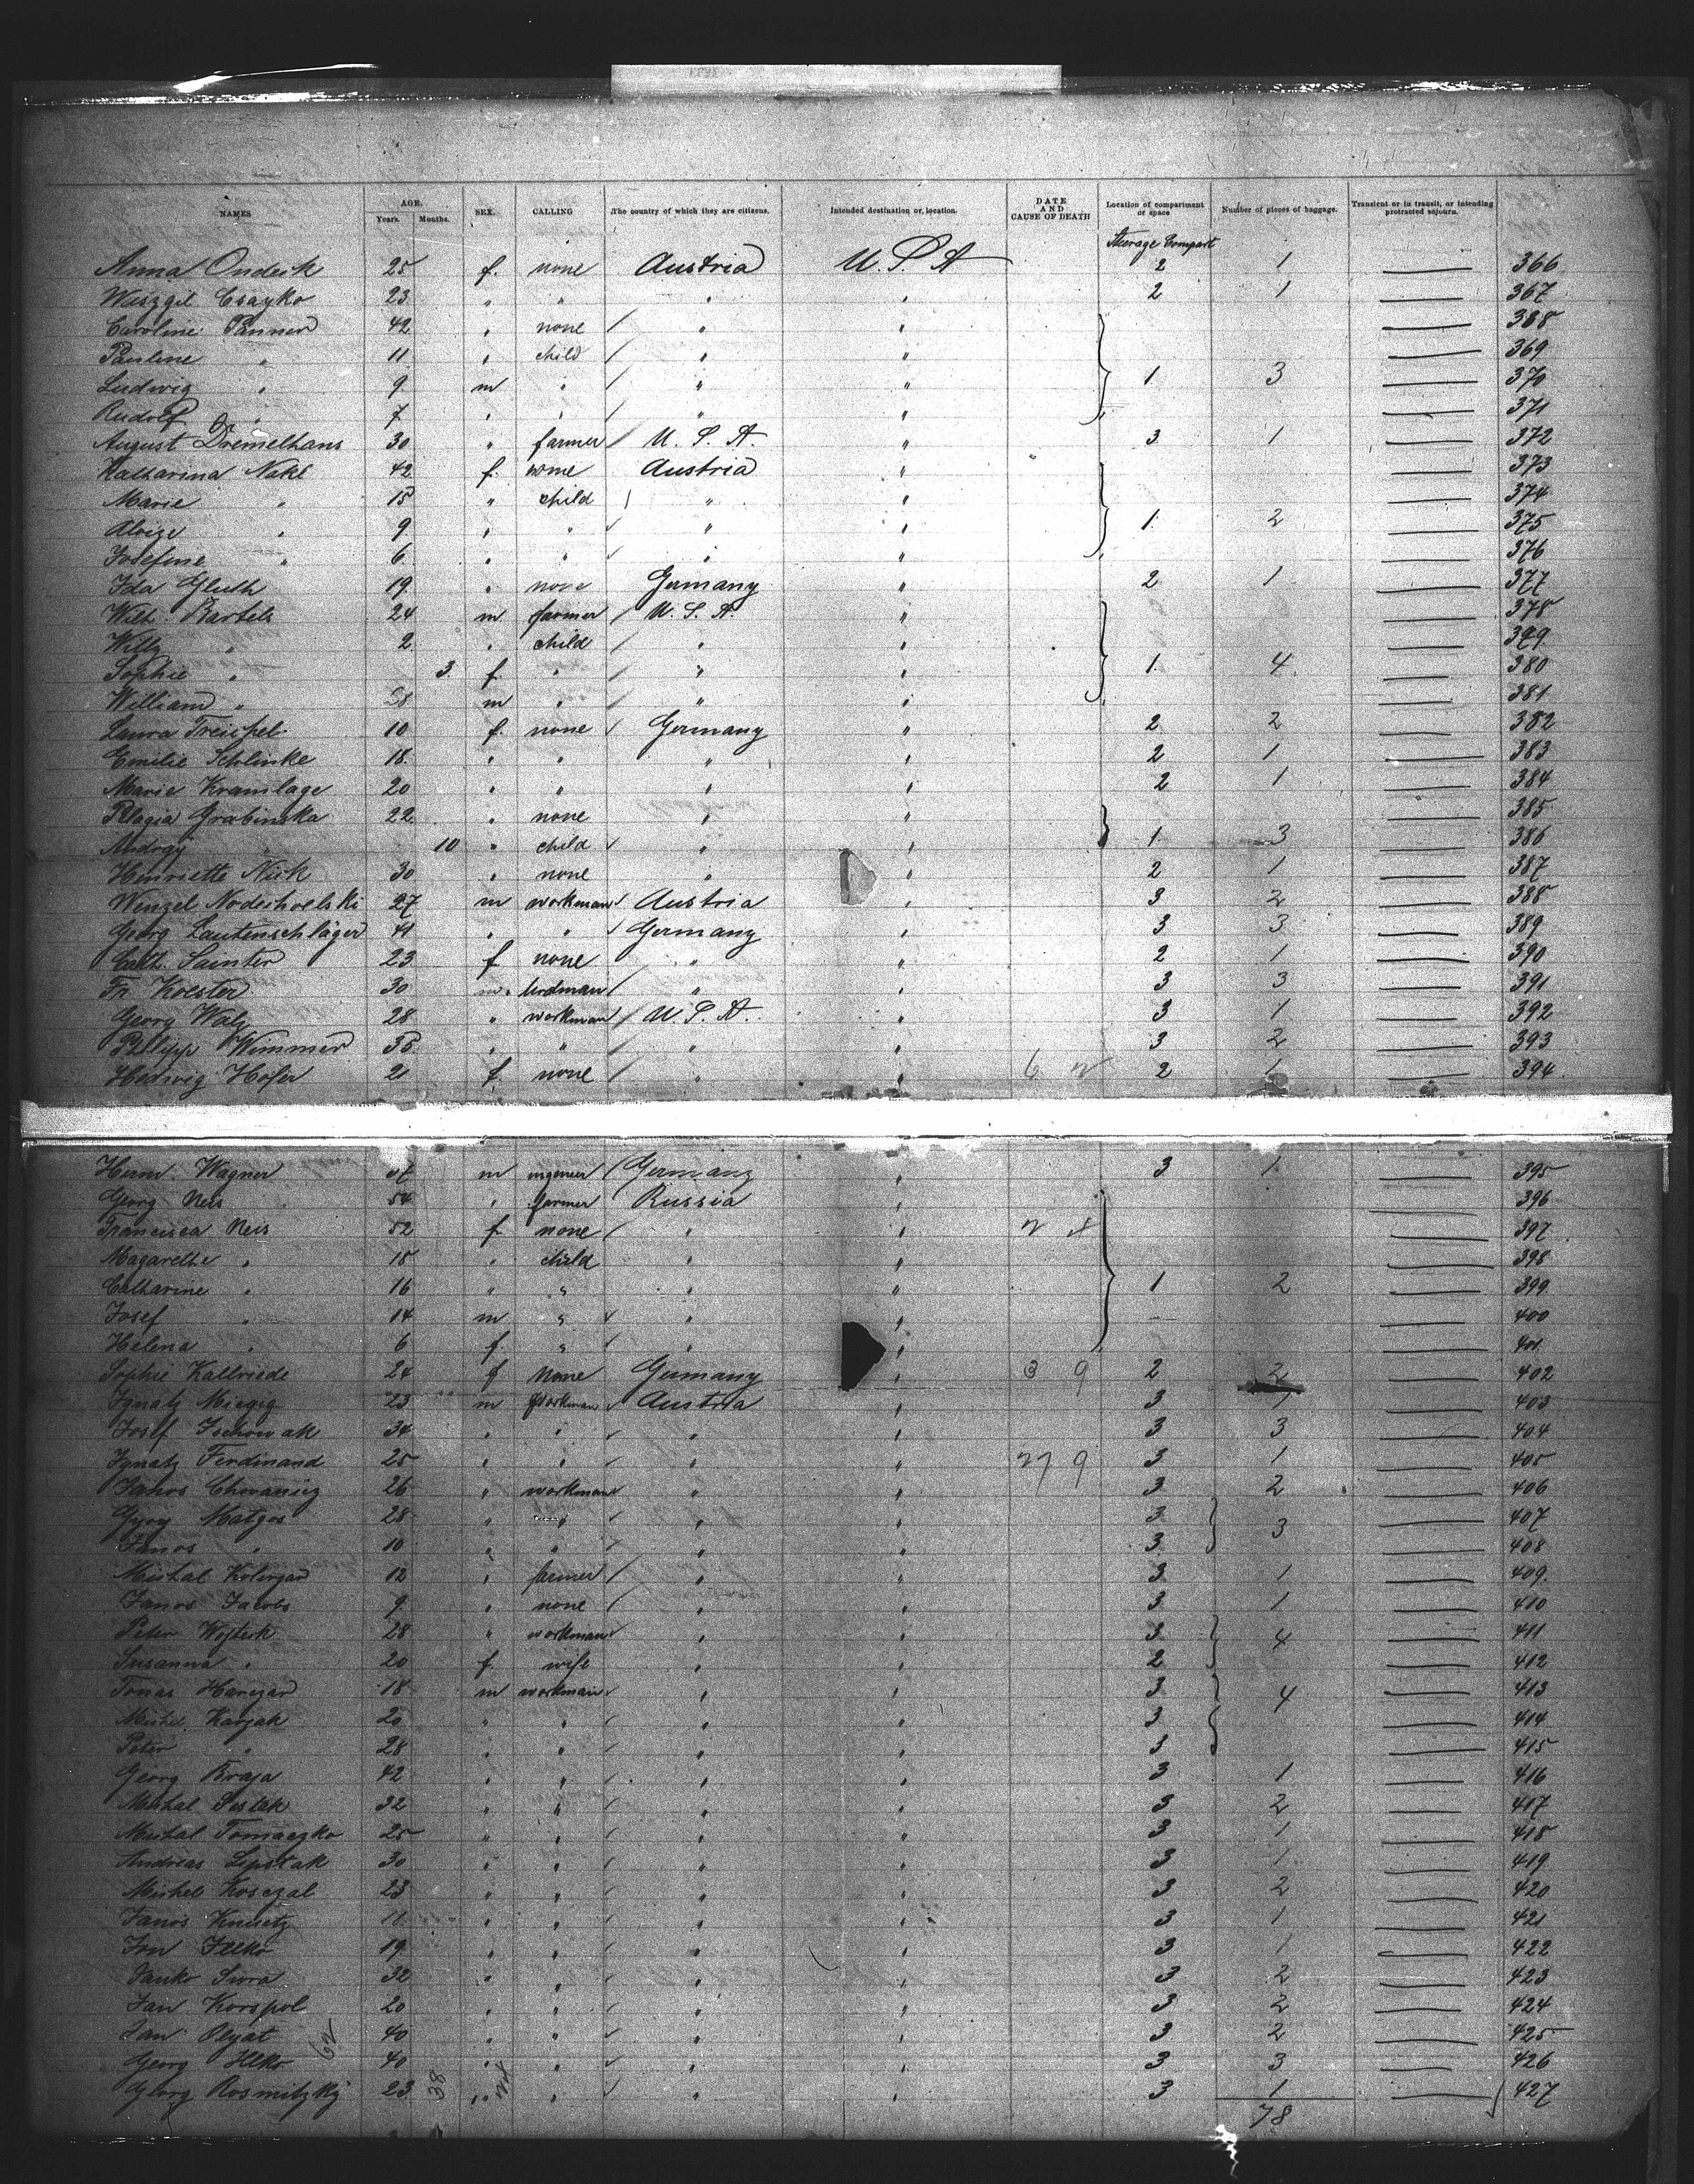 NAMES AGE. Years. Months. SEX. CALLING The country of which they are citizens. Intended destination or location. DATE AND CAUSE OF DEATH Location of compartment or space Number of pieces of baggage. Transient or in transit, or intending protracted sojourn.
Steerage Compart
Anna Ondeik 25 f. none Austria U.S.A 2 1 — 366
23 " " " " 2 1 — 367
Caroline Panner 42 " none / " " — 368
Pauline " 11 " child / " " — 369
Ludwig " 9 m " / " " 1 3 — 370
Rudolf " 7 " " / " " — 371
August Dremelhans 30 " farmer / U.S.A. " 3 1 — 372
Katharina Nakl 42 f. none Austria " — 373
Marie " 15 " child / " " — 374
Aloize " 9 " " " " 1 2 — 375
Josefine " 6 " " " " — 376
Ida Gluth 19 " none Germany " 2 1 — 377
Wilh. Bartels 24 m farmer / U.S.A. " — 378
Willy " 2 " child / " " — 379
Sophie " 3 f. " / " " 1 4 — 380
William " 38 m " / " " — 381
Laura Treichel 10 f. none / Germany " 2 2 — 382
Emilie Schlinke 18 " " " " 2 1 — 383
Marie Kramlage 20 " " " " 2 1 — 384
Pelagia Grabinska 22 " none " " — 385
10 " child " " 1 3 — 386
Henriette Nick 30 " none " " 2 1 — 387
Wenzel 27 m workman Austria " 3 2 — 388
Georg Lautenschläger 41 " " / Germany " 3 3 — 389
Cath. Sainter 23 f none " " 2 1 — 390
Fr. Koester 30 m. / " " 3 3 — 391
Georg Walz 28 " workman / U.S.A. " 3 1 — 392
Philipp Wimmer " " " " 3 2 — 393
Hedwig Hofer 2 f. none / " " 2 1 — 394
Herm. Wagner m ingenieur / Germany " 3 1 — 395
Georg Neis 54 " farmer Russia " — 396
Francisca Neis 52 f none / " " — 397
Magarethe " 18 " child " " — 398
Catharine " 16 " " " " 1 2 — 399
Josef " 14 m " " " — 400
Helena " 6 f. " / " " — 401
Sophie Kallriede 24 f none Germany " 3 9 2 2 — 402
Ignatz 23 m workman Austria " 3 — 403
Josef Ischowak 34 " " " " 3 3 — 404
Ignatz Ferdinand 25 " " " " 27 9 3 1 — 405
Janos 26 " workman " " 3 2 — 406
Gyory Matyos 28 " " " " 3 3 — 407
Janos " 10 " " " " 3 — 408
Mishal 12 " farmer / " " 3 1 — 409
Janos Jacobs 9 " none / " " 3 1 — 410
Peter Wojteck 28 " workman " " 3 4 — 411
Susanna " 20 f. wife " " 2 — 412
Jonas 18 m workman " " 3 4 — 413
Mishel Karjak 20 " " / " " 3 — 414
Peter " 28 " " / " " 3 — 415
Georg Braja 42 " " / " " 3 1 — 416
Mishal Sestak 32 " " / " " 3 2 — 417
Mishal Tomaczko 25 " " / " " 3 1 — 418
Andreas Lipstak 30 " " / " " 3 1 — 419
Mishel Kosczal 23 " " / " " 3 2 — 420
Janos " " / " " 3 1 — 421
Jon Ilko 19 " " / " " 3 1 — 422
Janko Siora 32 " " / " " 3 2 — 423
Jan Korspol 20 " " / " " 3 2 — 424
Jan Olyat 40 " " " " 3 2 — 425
Georg Ilko 40 " " " " 3 3 — 426
Georg Rosmitzky 23 " " / " " 3 1 — 427
62 38 24 78